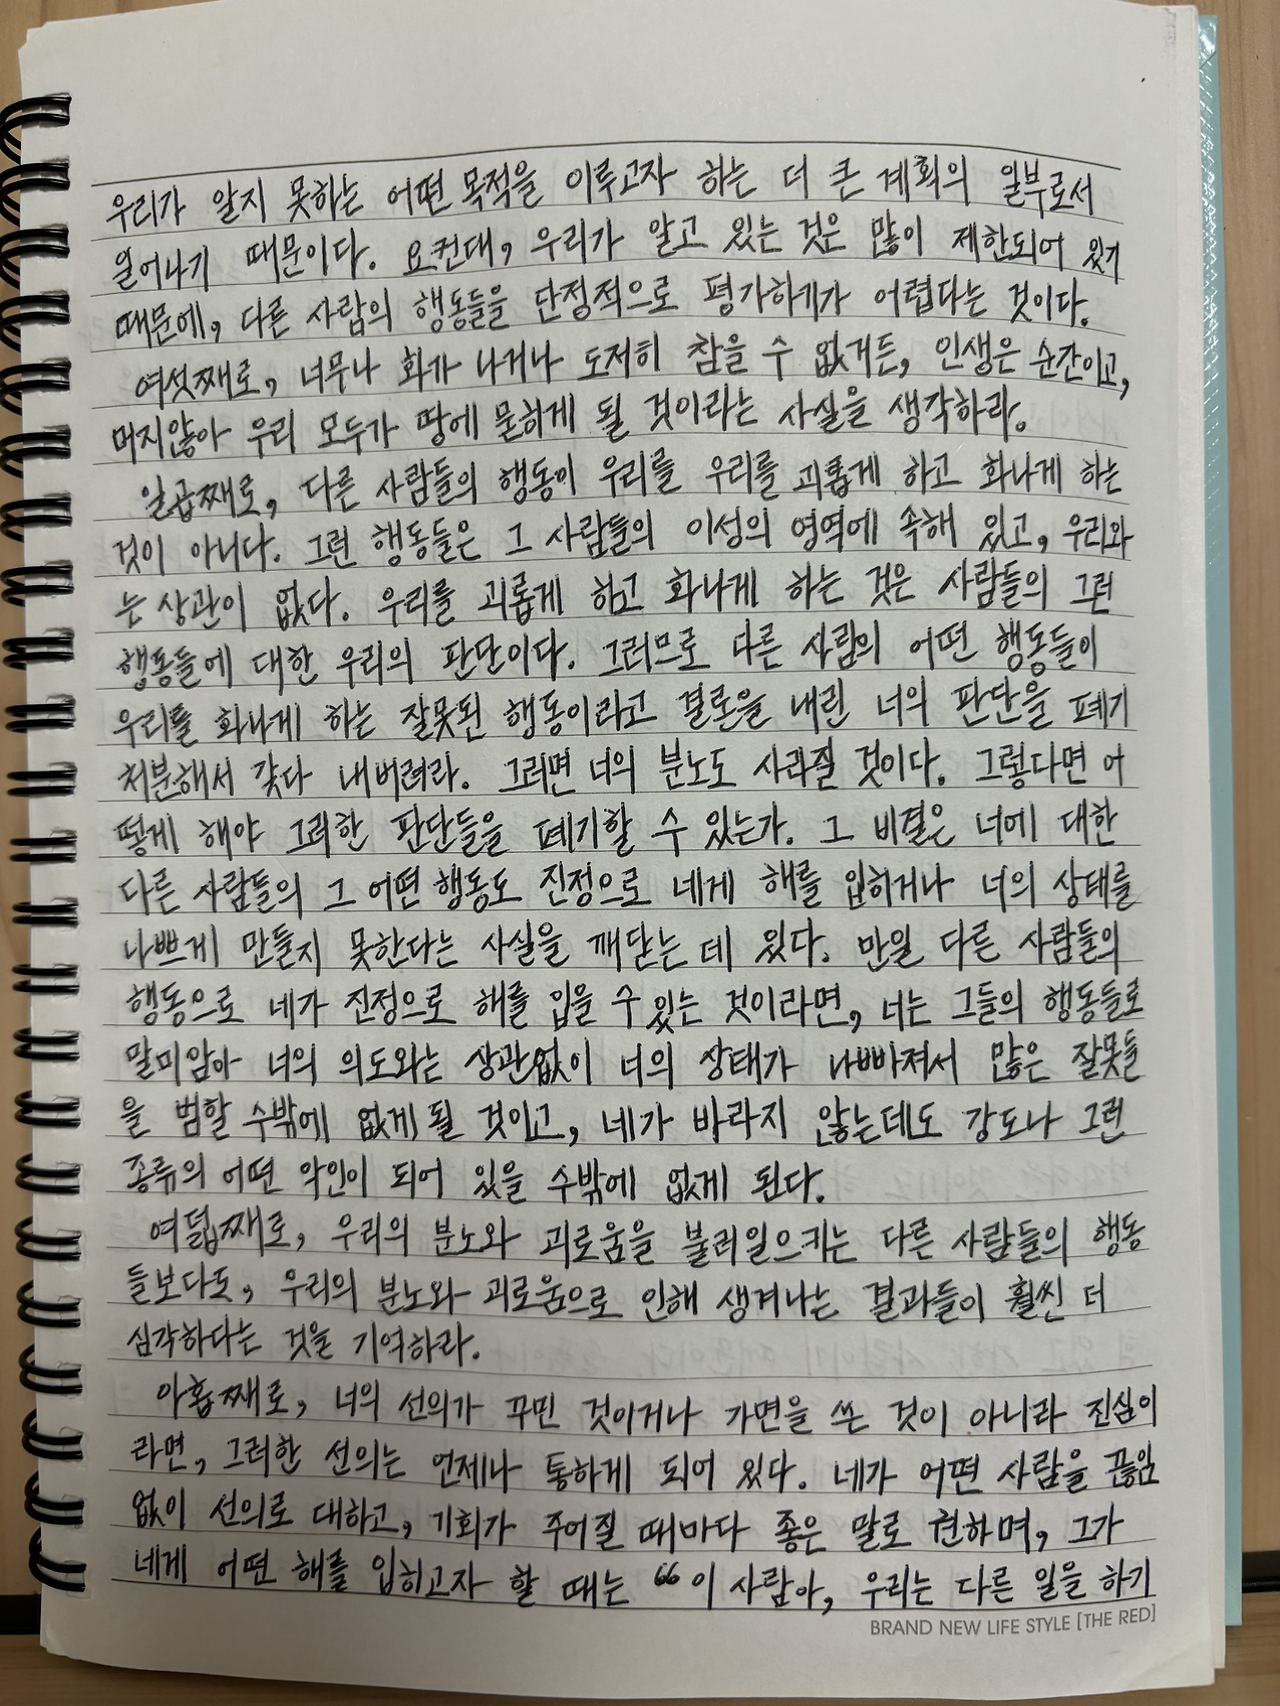 우리가 알지 못하는 어떤 목적을 이루고자 하는 더 큰 계획의 일부로서
일어나기 때문이다. 요컨대, 우리가 알고 있는 것은 많이 제한되어 있기
때문에, 다른 사람의 행동들을 단정적으로 평가하기가 어렵다는 것이다.
여섯째로, 너무나 화가 나거나 도저히 참을 수 없거든, 인생은 순간이고,
머지않아 우리 모두가 땅에 묻히게 될 것이라는 사실을 생각하라.
일곱째로, 다른 사람들의 행동이 우리를 우리를 괴롭게 하고 화나게 하는
것이 아니다. 그런 행동들은 그 사람들의 이성의 영역에 속해 있고, 우리와
는 상관이 없다. 우리를 괴롭게 하고 화나게 하는 것은 사람들의 그런
행동들에 대한 우리의 판단이다. 그러므로 다른 사람의 어떤 행동들이
우리를 화나게 하는 잘못된 행동이라고 결론을 내린 너의 판단을 폐기
처분해서 갖다 내버려라. 그러면 너의 분노도 사라질 것이다. 그렇다면 어
떻게 해야 그러한 판단들을 폐기할 수 있는가. 그 비결은 너에 대한
다른 사람들의 그 어떤 행동도 진정으로 네게 해를 입히거나 너의 상태를
나쁘게 만들지 못한다는 사실을 깨닫는 데 있다. 만일 다른 사람들의
행동으로 네가 진정으로 해를 입을 수 있는 것이라면, 너는 그들의 행동들로
말미암아 너의 의도와는 상관없이 너의 상태가 나빠져서 많은 잘못들
을 범할 수밖에 없게 될 것이고, 네가 바라지 않는데도 강도나 그런
종류의 어떤 악인이 되어 있을 수밖에 없게 된다.
여덟째로, 우리의 분노와 괴로움을 불러일으키는 다른 사람들의 행동
들보다도, 우리의 분노와 괴로움으로 인해 생겨나는 결과들이 훨씬 더
심각하다는 것을 기억하라.
아홉째로, 너의 선의가 꾸민 것이거나 가면을 쓴 것이 아니라 진심이
라면, 그러한 선의는 언제나 통하게 되어 있다. 네가 어떤 사람을 끊임
없이 선의로 대하고, 기회가 주어질 때마다 좋은 말로 권하며, 그가
네게 어떤 해를 입히고자 할 때는 “이 사람아, 우리는 다른 일을 하기
BRAND NEW LIFE STYLE [THE RED]